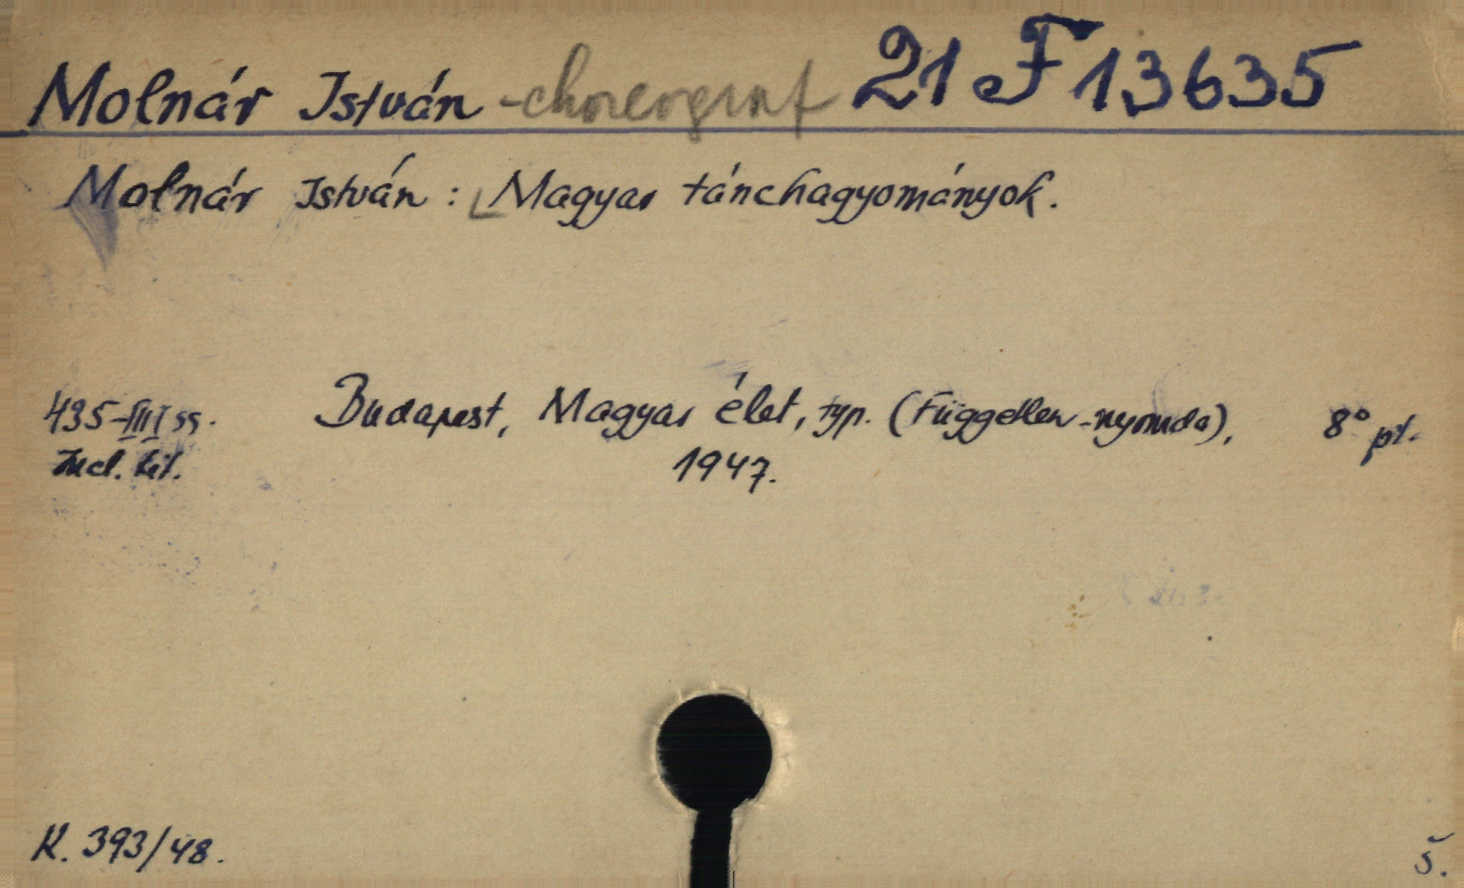 Molnár István - choreograf 21 F 13635
Molnár István : Magyar tánchagyományok.
435-III ss. Budapest, Magyar élet, typ. (Független-nyomda), 8° pl.
Incl. tit. 1947.
K. 393/48.
5.